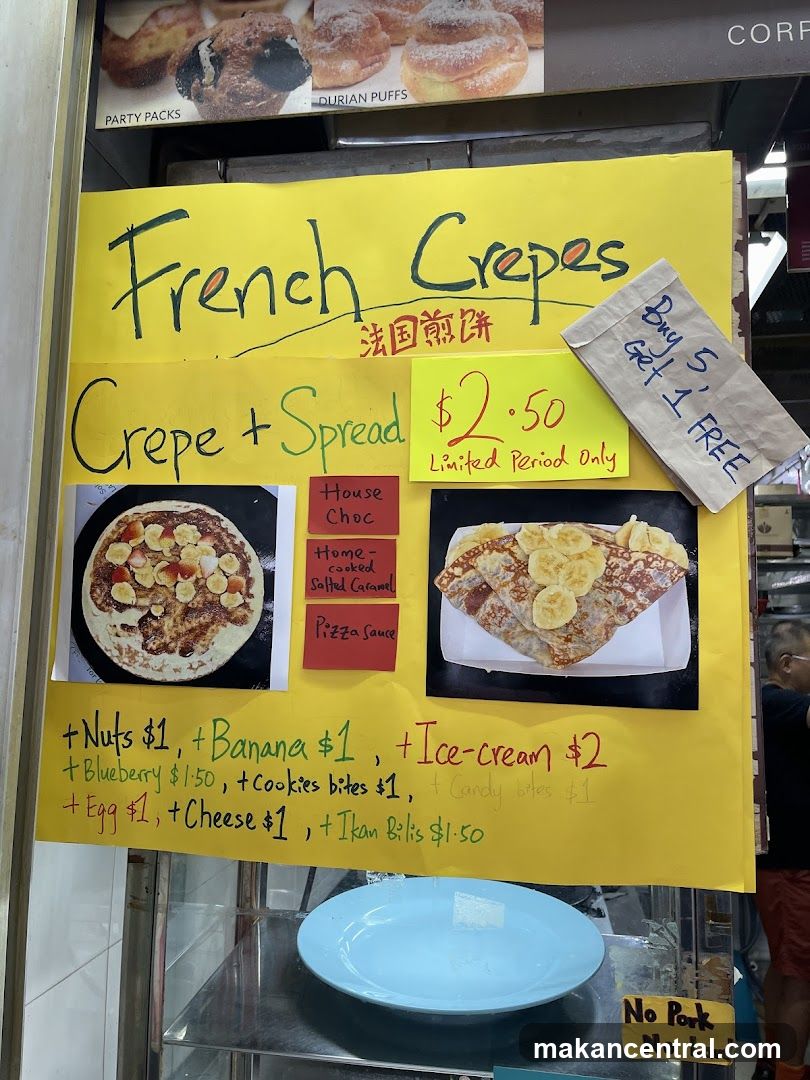 PARTY PACKS
DURIAN PUFFS
CORP
French Crepes
法国煎饼
Buy 5,
Get 1 FREE
Crepe + Spread
$2.50
Limited Period Only
House
Choc
Home-
cooked
Salted Caramel
Pizza Sauce
+Nuts $1, +Banana $1, +Ice-cream $2
+Blueberry $1.50, +Cookies bites $1, + Candy bites $1
+Egg $1, +Cheese $1, +Ikan Bilis $1.50
No Pork
makancentral.com